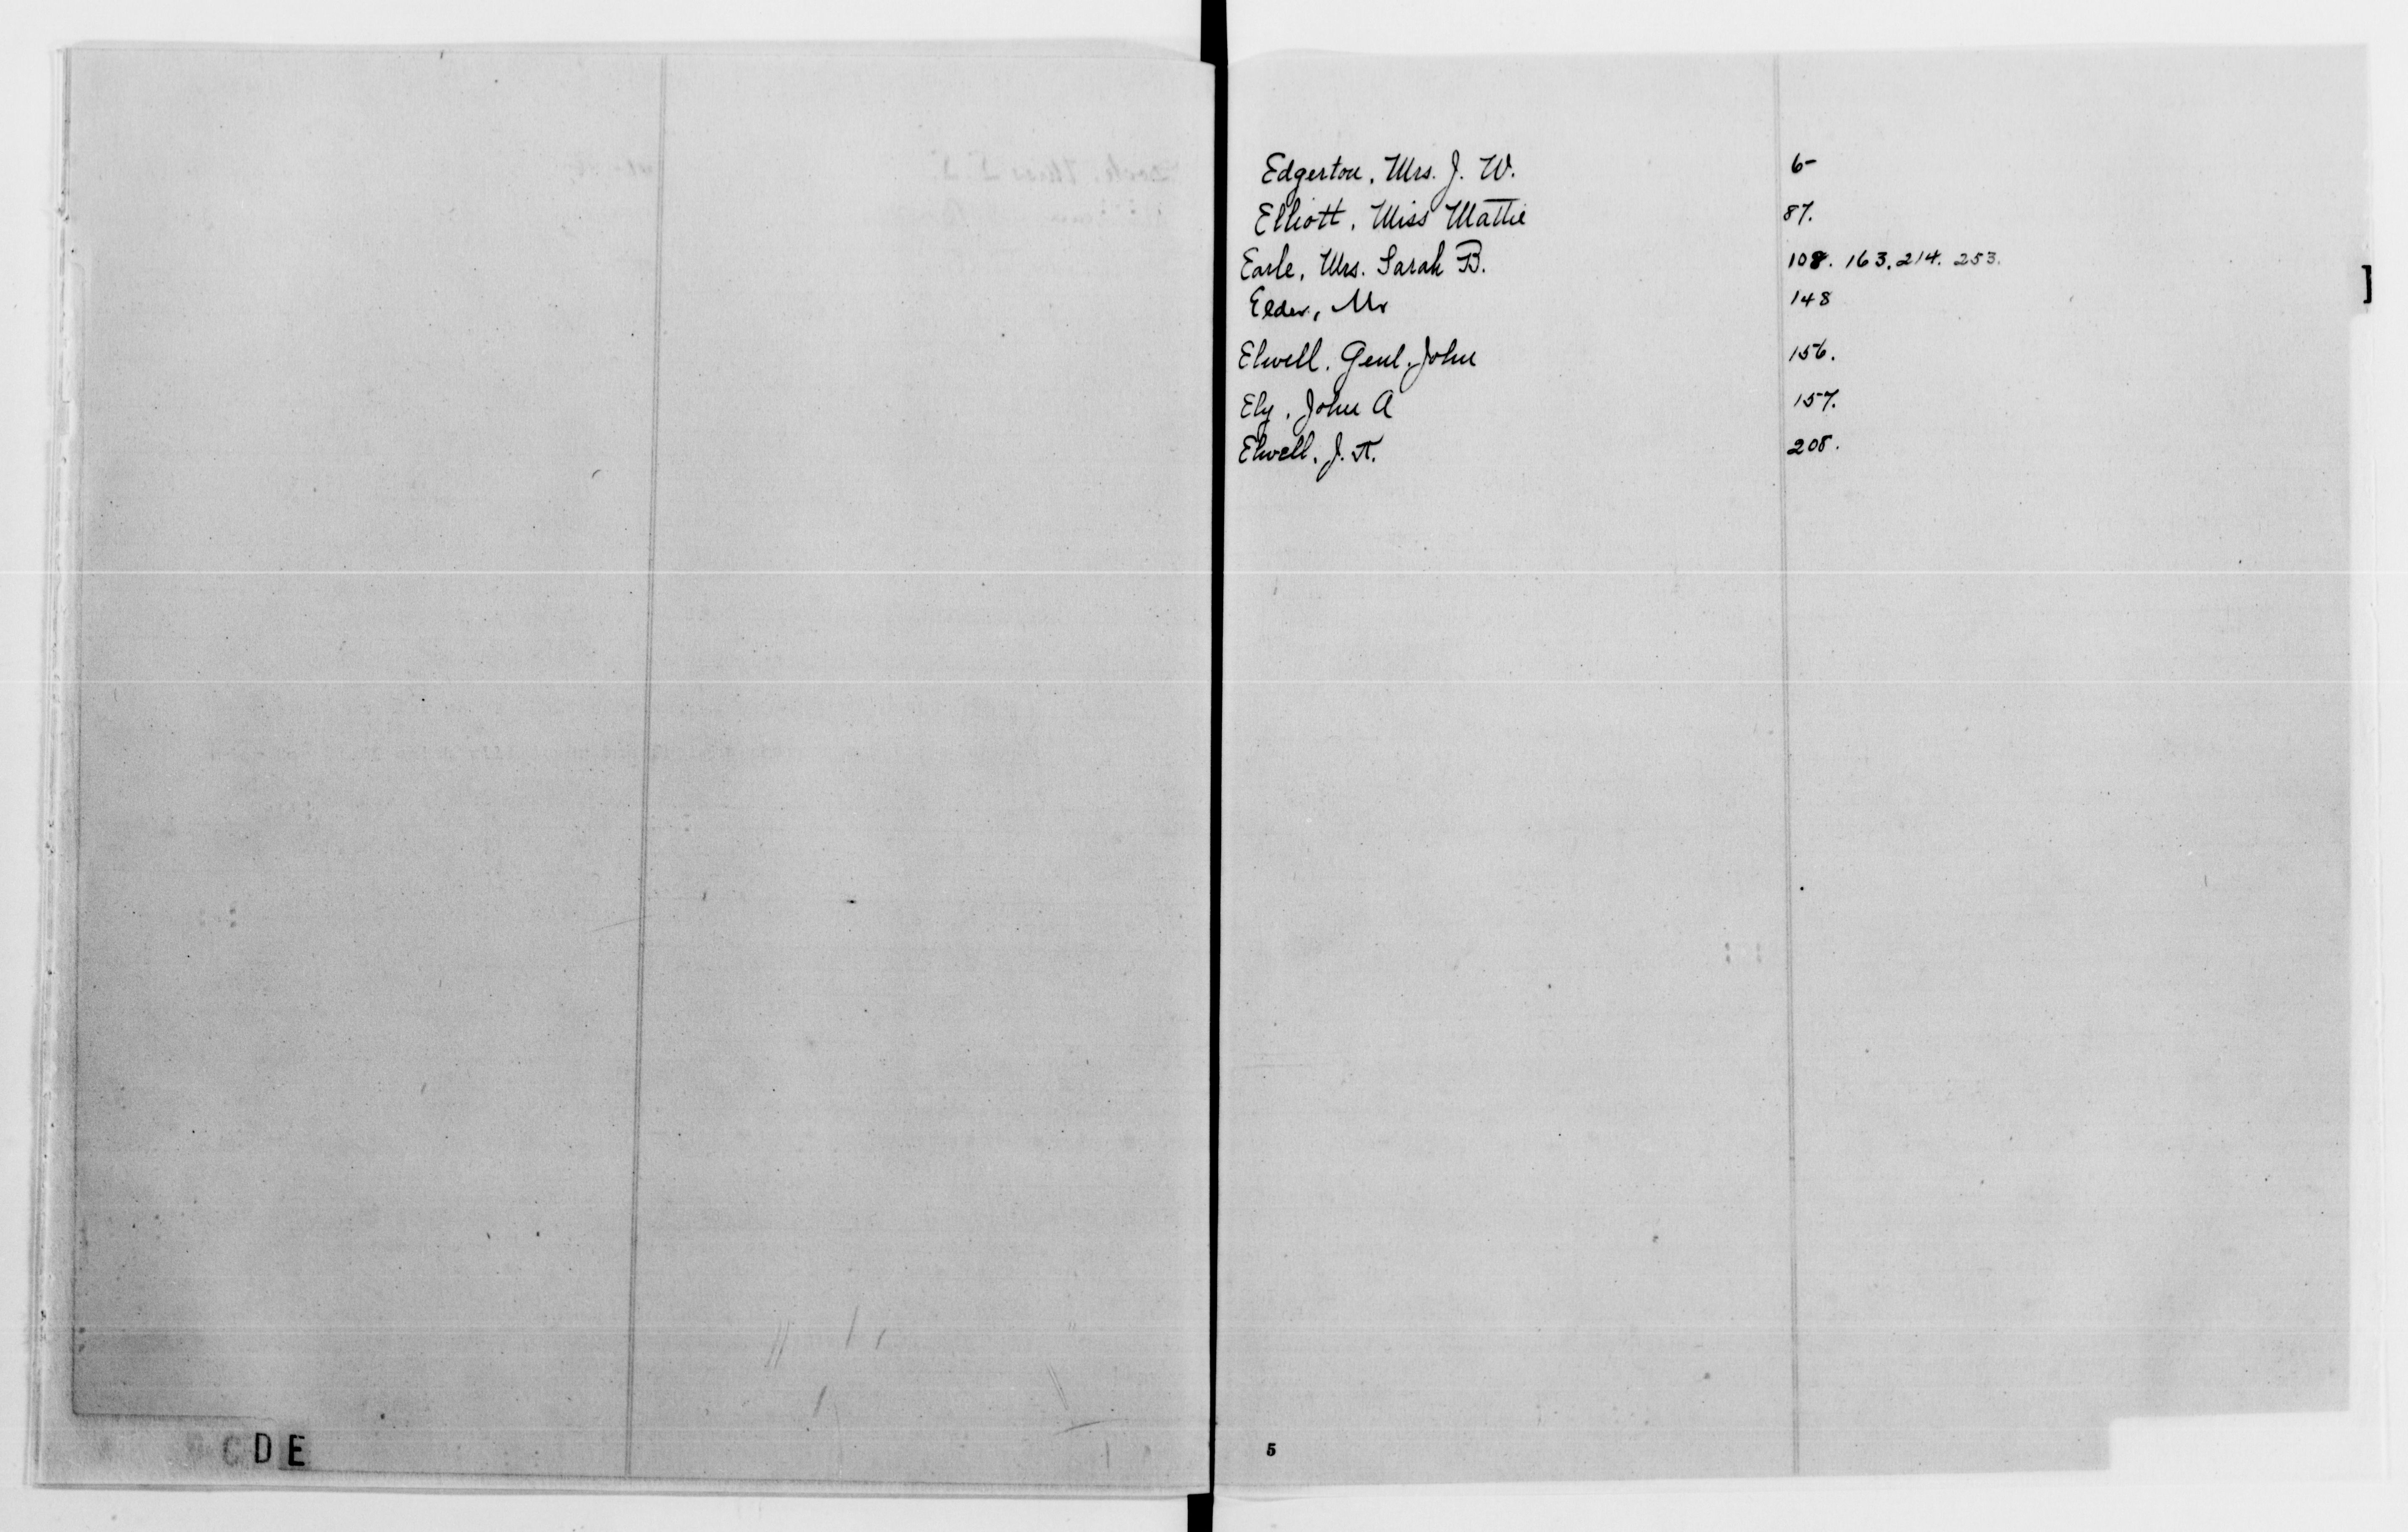 D E
Edgerton, Mrs. J. W. 6-
Elliott, Miss Mattie 87.
Earle, Mrs. Sarah B. 108. 163. 214. 253.
Elder, Mr 148
Elwell, Genl. John 156.
Ely, John A 157.
Elwell, J. 208.
5